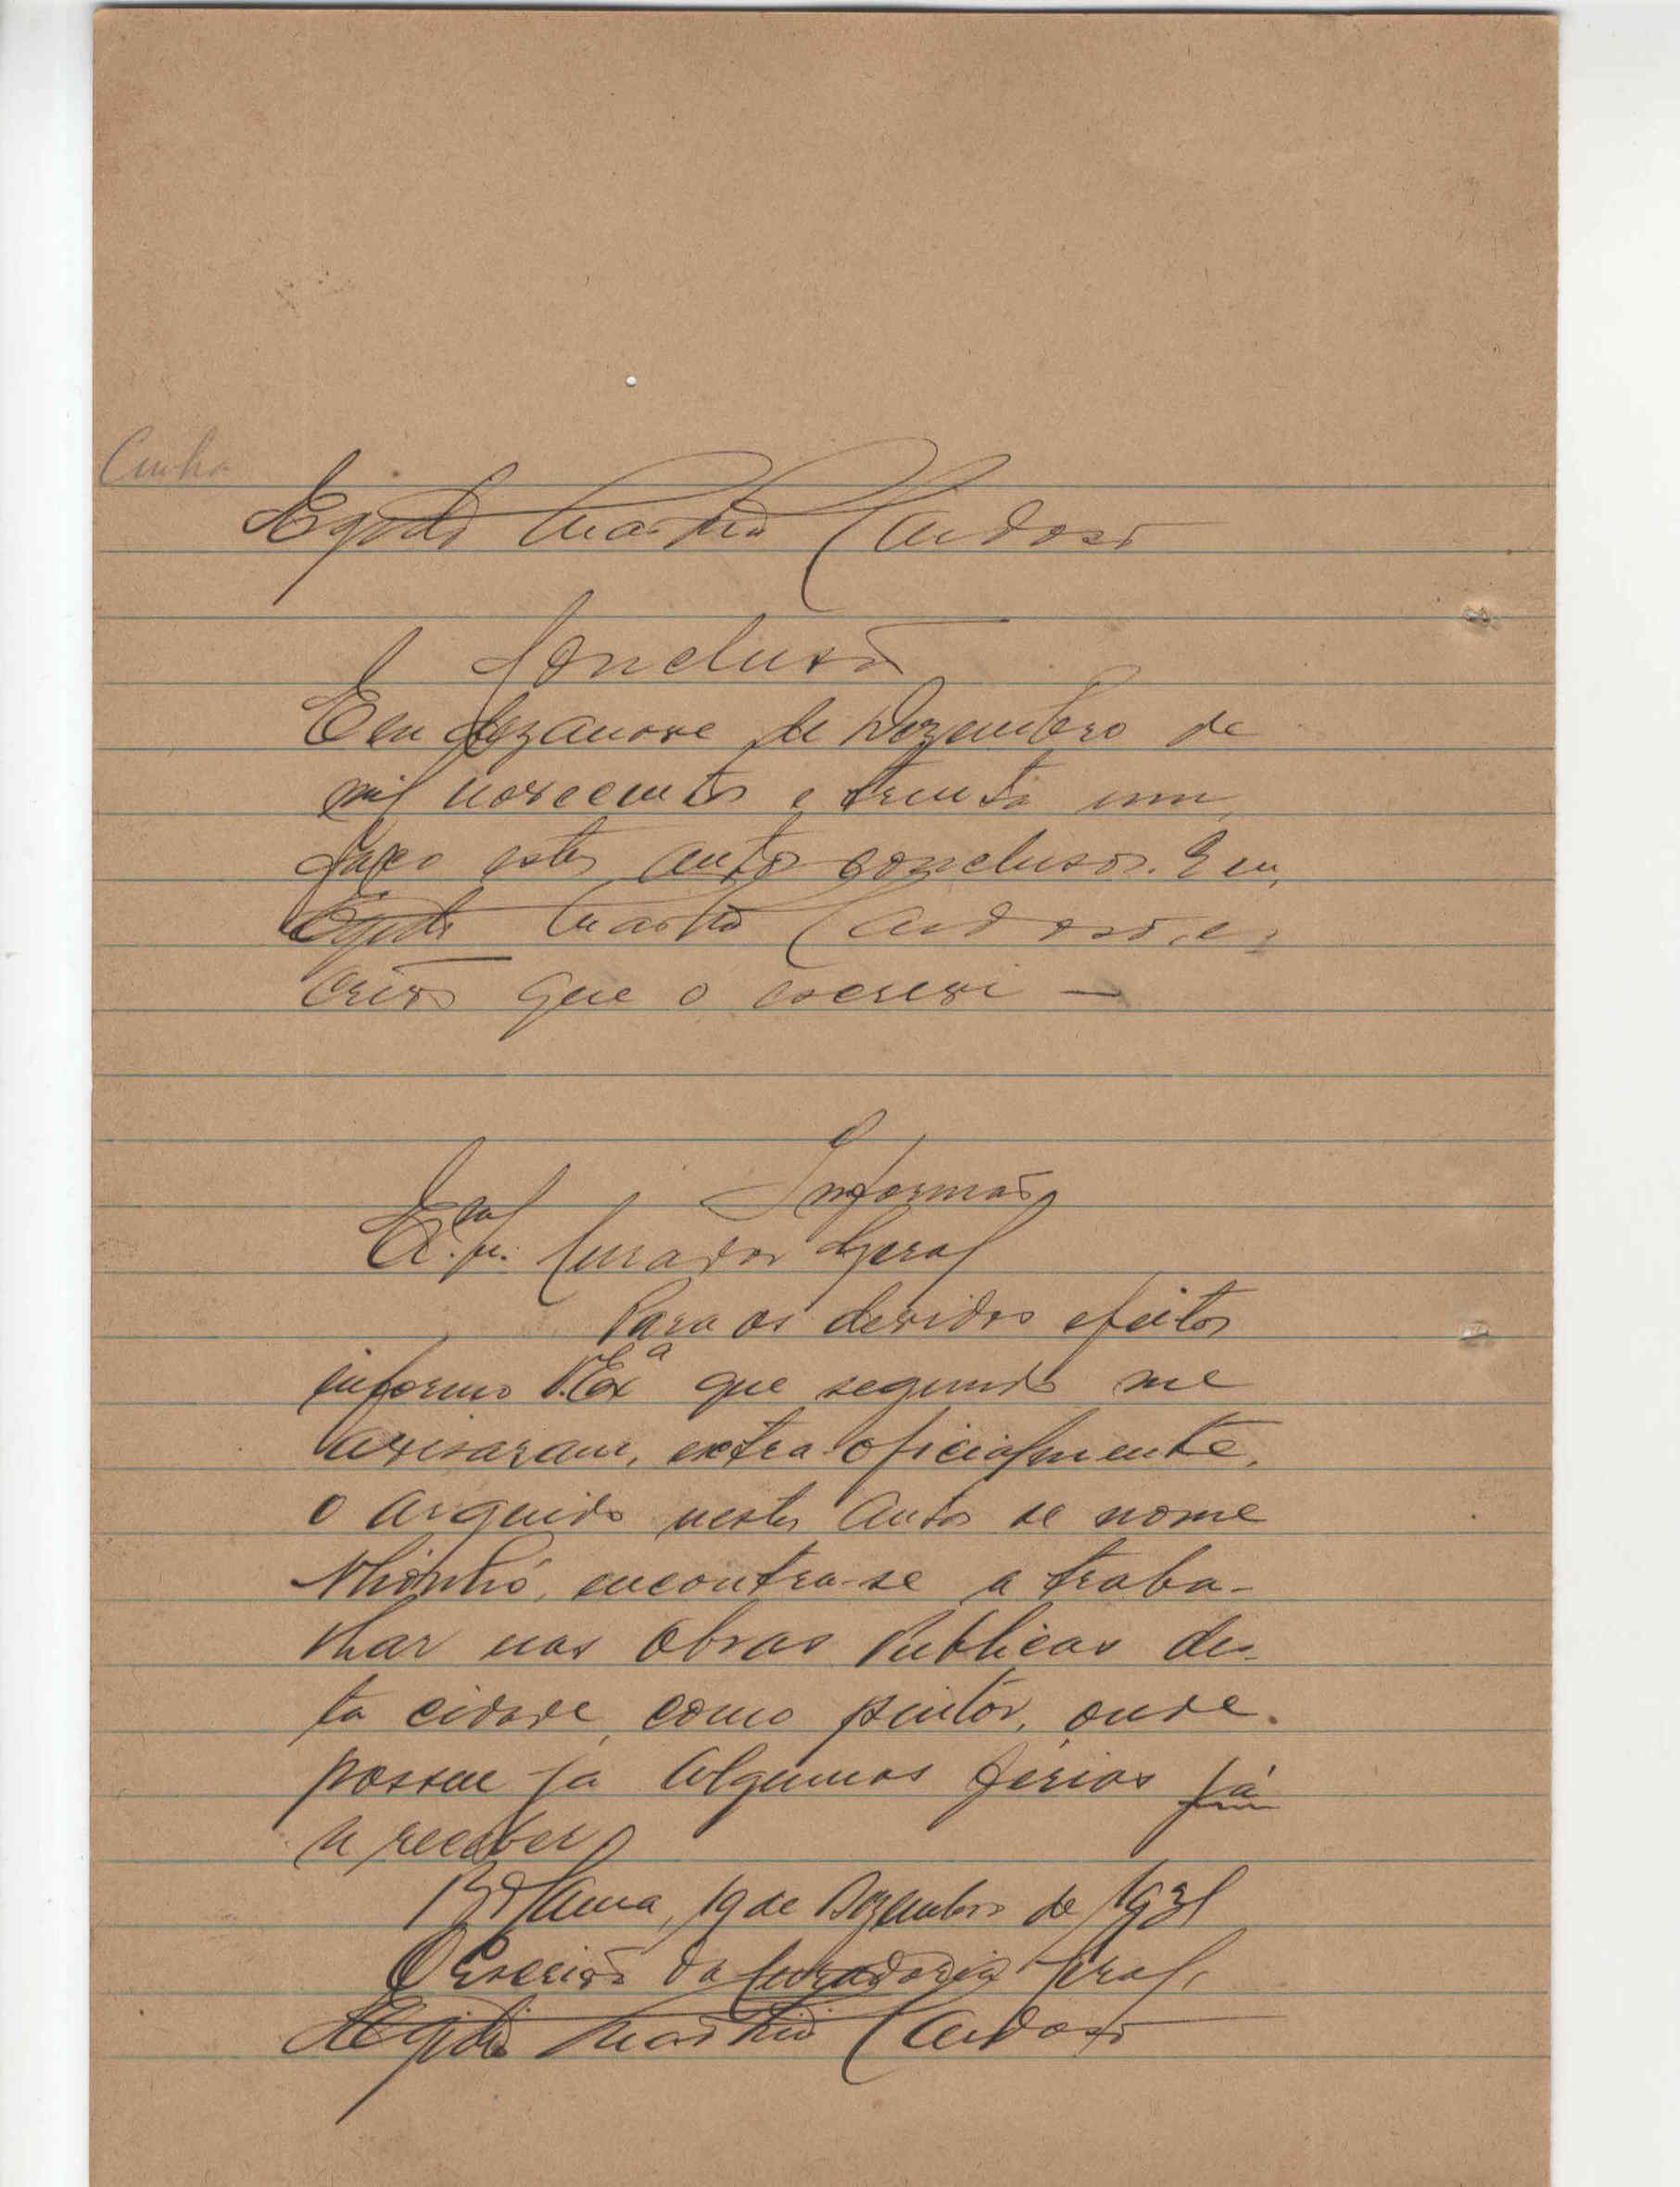 Cunha
Egidio Martins Cardoso
Conclusão
Em dezanove de Dezembro de
mil novecentos e trinta um,
faço estes autos conclusos. E eu,
Egidio Martins Cardoso, es
crivão que o escrevi —
Informação
Ex.mo Sr. Curador Geral
Para os devidos efeitos
informo V. Exª que segundo me
avisaram, extra-oficialmente,
o arguido nestes autos de nome
encontra-se a traba-
lhar nas Obras Publicas des-
ta cidade, como pintôr, onde
possue ja algumas férias já
a receber
19 de Dezembro de 1931
O Escrivão da Curadoria Geral,
Egidio Martins Cardoso